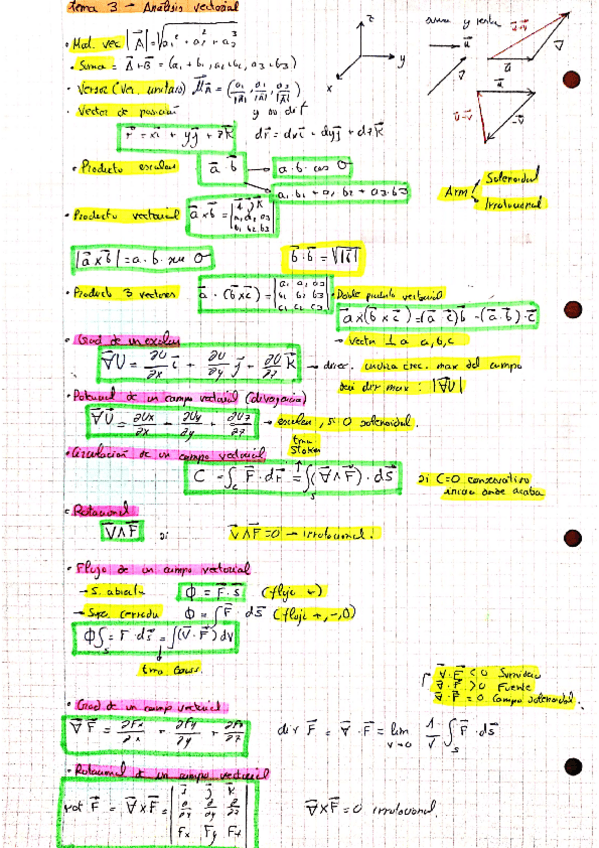 tema 3 - Análisis vectorial
· Mod. vec |A⃗| = √a₁² + a₂² + a₂³
suma y resta
· Suma = A⃗+B⃗ = (a₁+b₁, a₂+b₂, a₃+b₃)
z
y
x
· Versor (Vec. unitario)
· Vector de posición y su dif
r⃗ = xi⃗ + yj⃗ + zk⃗ dr⃗ = dxi⃗ + dyj⃗ + dzk⃗
· Producto escalar a⃗·b⃗ a·b·cos θ
a₁·b₁ + a₂ b₂ + a₃·b₃
Arm Solenoidal
Irrotacional
· Producto vectorial a⃗×b⃗ = |i⃗ j⃗ k⃗
a₁ a₂ a₃
b₁ b₂ b₃|
|a⃗×b⃗| = a·b·sen θ
· Producto 3 vectores a⃗·(b⃗×c⃗) = |a₁ a₂ a₃
b₁ b₂ b₃
c₁ c₂ c₃|
· Doble producto vectorial
a⃗×(b⃗×c⃗) = (a⃗·c⃗)b⃗ - (a⃗·b⃗)·c⃗
→ vector ⊥ a a, b, c
· Grad de un escalar
∇⃗U = ∂U/∂x i⃗ + ∂U/∂y j⃗ + ∂U/∂z k⃗ → direc. indica crec. max del campo
max: |∇⃗U|
· Potencial de un campo vectorial (divergencia)
∇⃗U⃗ = ∂Ux/∂x + ∂Uy/∂y + ∂Uz/∂z → escalar, si 0 solenoidal.
tma Stokes
· Circulación de un campo vectorial
C = ∫c F⃗·dr⃗ = ∫s (∇⃗∧F⃗)·dS⃗ si C=0 conservativo
inicia donde acaba
· Rotacional
∇⃗∧F⃗ si ∇⃗∧F⃗=0 → irrotacional.
· Flujo de un campo vectorial
→ S. abierta Φ = F⃗·s⃗ (flujo +)
→ Sup. cerrada Φ = ∫F⃗·dS⃗ (flujo +,-,0)
Φ∫s = F⃗·ds⃗ = ∫(∇⃗·F⃗)dV
tma Gauss.
∇⃗·F⃗ < 0 Sumidero
∇⃗·F⃗ > 0 Fuente
∇⃗·F⃗ = 0 Campo solenoidal.
· Grad de un campo vectorial
∇⃗F⃗ = ∂Fx/∂x + ∂Fy/∂y + ∂Fz/∂z div F⃗ = ∇⃗·F⃗ = lim v→0 1/V ∫s F⃗·ds⃗
· Rotacional de un campo vectorial
rot F⃗ = ∇⃗×F⃗ = |i⃗ j⃗ k⃗
Fx Fy Fz| ∇⃗×F⃗=0 irrotacional.